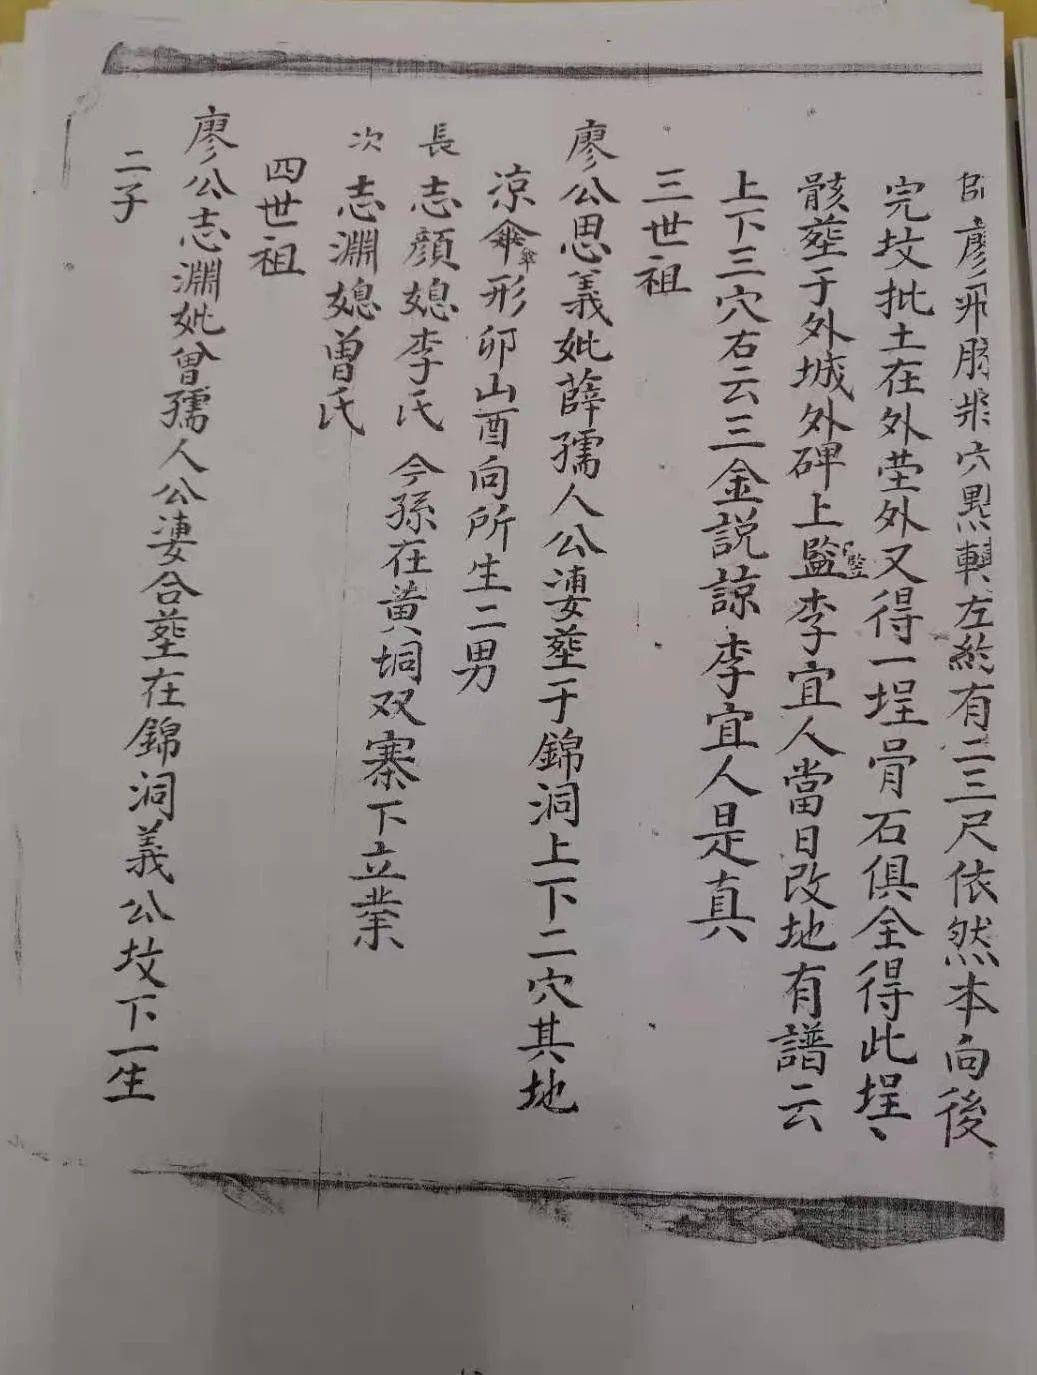 師廖飛穴點轉左約有二三尺依然本向後
完坟批土在外茔外又得一埕骨石俱全得此埕、
骸塟于外城外碑上監「監李宜人當日改地有譜云
上下三穴右云三金説諒李宜人是真
三世祖
廖公思義妣薛孺人公凄塟于錦洞上下二穴其地
凉傘傘形卯山酉向所生二男
長志顔媳李氏 今孫在黄垌双寨下立業
次志淵媳曽氏
四世祖
廖公志淵妣曾孺人公凄合塟在錦洞義公坟下一生
二子